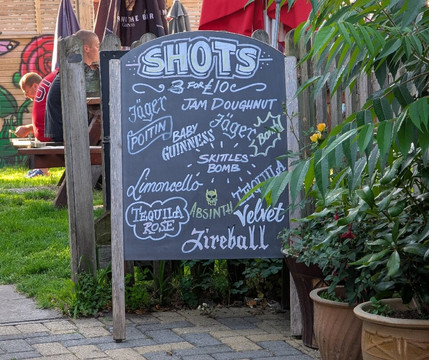 SHOTS
3 FOR £10
Jäger
JAM DOUGHNUT
POITIN
BABY
GUINNESS
Jäger
BOMB
SKITTLES
BOMB
Limoncello
TEQUILA
ABSINTH
TEQUILA
ROSE
Velvet
Fireball